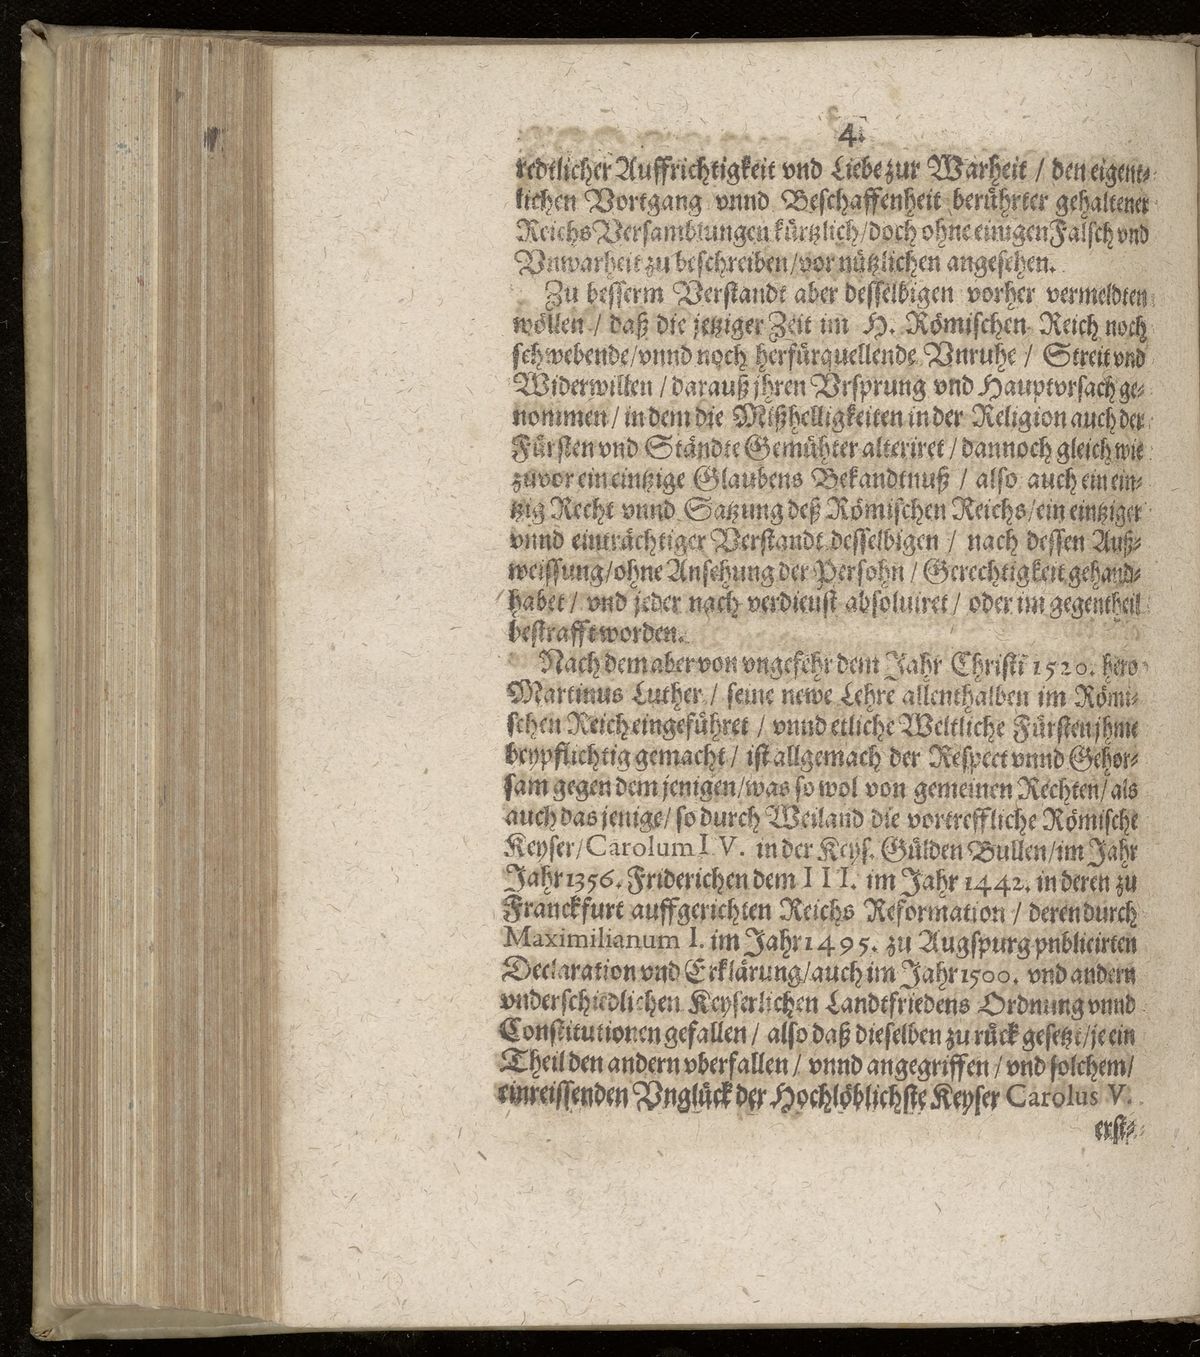 4.
redtlicher Auffrichtigkeit vnd Liebe zur Warheit / den eigent-
lichen Vortgang vnnd Beschaffenheit berührter gehaltener
Reichs Versamblungen kürtzlich/doch ohne einigen Falsch vnd
Vnwarheit zu beschreiben/vor nützlichen angesehen.
Zu besserm Verstandt aber desselbigen vorher vermeldten
wöllen / daß die jetziger Zeit im H. Römischen Reich noch
schwebende/vnnd noch herfürquellende Vnruhe / Streit vnd
Widerwillen / darauß jhren Vrsprung vnd Hauptvrsach ge-
nommen / in dem die Mißhelligkeiten in der Religion auch der
Fürsten vnd Ständte Gemühter alteriret / dannoch gleich wie
zuvor ein eintzige Glaubens Bekandtnuß / also auch ein ein-
tzig Recht vnnd Satzung deß Römischen Reichs/ein eintziger
vnnd einträchtiger Verstandt desselbigen / nach dessen Auß-
weissung/ohne Ansehung der Persohn / Gerechtigkeit gehand-
habet / vnd jeder nach verdienst absolviret / oder im gegentheil
bestrafft worden.
Nach dem aber von vngefehr dem Jahr Christi 1520. hero
Martinus Luther / seine newe Lehre allenthalben im Römi-
schen Reich eingeführet / vnnd etliche Weltliche Fürsten jhme
beypflichtig gemacht / ist allgemach der Respect vnnd Gehor-
sam gegen dem jenigen/was so wol von gemeinen Rechten/als
auch das jenige/so durch Weiland die vortreffliche Römische
Keyser/Carolum IV. in der Keys. Gülden Bullen/im Jahr
Jahr 1356. Friderichen dem III. im Jahr 1442. in deren zu
Franckfurt auffgerichten Reichs Reformation / deren durch
Maximilianum I. im Jahr 1495. zu Augspurg pnblicirten
Declaration vnd Erklärung/auch im Jahr 1500. vnd andern
vnderschiedlichen Keyserlichen Landtfriedens Ordnung vnnd
Constitutionen gefallen / also daß dieselben zu rück gesetzt/je ein
Theil den andern vberfallen / vnnd angegriffen / vnd solchem/
einreissenden Vnglück der Hochlöblichste Keyser Carolus V.
erst-